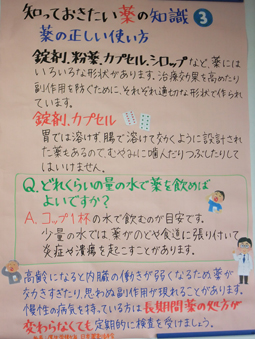 知っておきたい薬の知識 3
薬の正しい使い方
錠剤、粉薬、カプセル、シロップなど、薬には
いろいろな形状があります。治療効果を高めたり
副作用を防ぐために、それぞれ適切な形状で作られ
ています。
錠剤、カプセル
胃では溶けず、腸で溶けて効くように設計され
た薬もあるので、むやみに噛んだりつぶしたりして
はいけません。
Q.どれくらいの量の水で薬を飲めば
よいですか?
A.コップ1杯の水で飲むのが目安です。
少量の水では薬がのどや食道に張り付いて
炎症や潰瘍を起こすことがあります。
高齢になると内臓の働きが弱くなるため、薬が
効きすぎたり、思わぬ副作用が現れることがあります。
慢性の病気を持っている方は長期間薬の処方が
変わらなくても定期的に検査を受けましょう。